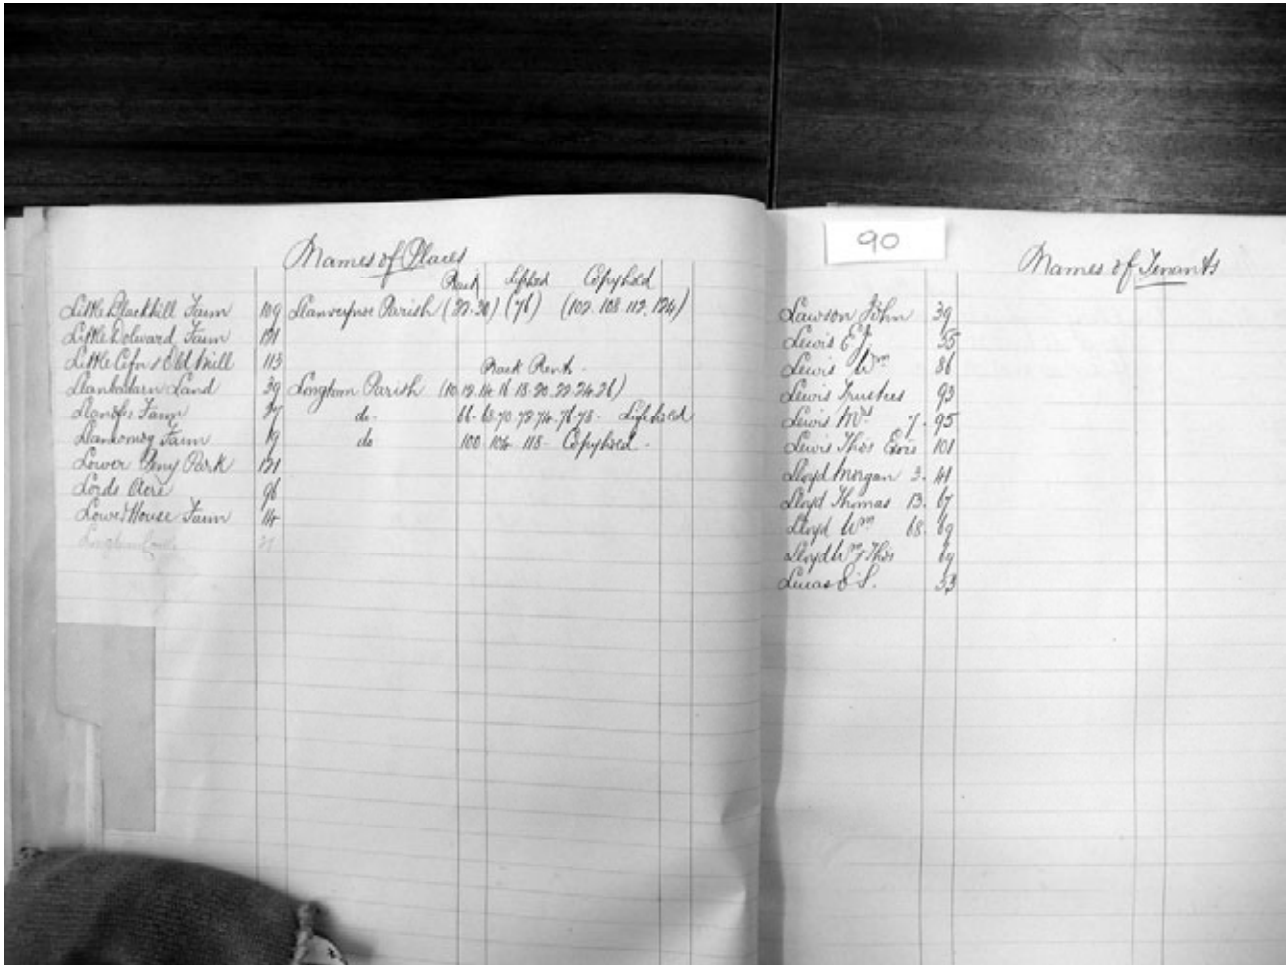 Names of Places
Rack Lifehold Copyhold
Little Blackhill Farm 109 Parish (22.30) (76) (102.108.112.124)
Little Dolward Farm 121
Little Cefn & Old Mill 113
Rack Rents
Land 39 Langtum Parish (10.12.14.16.18.20.22.24.26)
Farm 37 do. 66.68.70.72.74.76.78 - Lifehold
Farm 19 do 100 106 118 - Copyhold -
Lower Park 121
Lords Acre 96
Lower House Farm 14
90
Names of Tenants
Lawson John 39
Lewis E.J. 35
Lewis Wm 86
Lewis Trustees 93
Lewis Mrs 7. 95
Lewis Thos Exors 101
Lloyd Morgan 3. 41
Lloyd Thomas 13. 67
Lloyd Wm 68. 69
Lloyd Wm Thos 69
Lucas E. S. 33